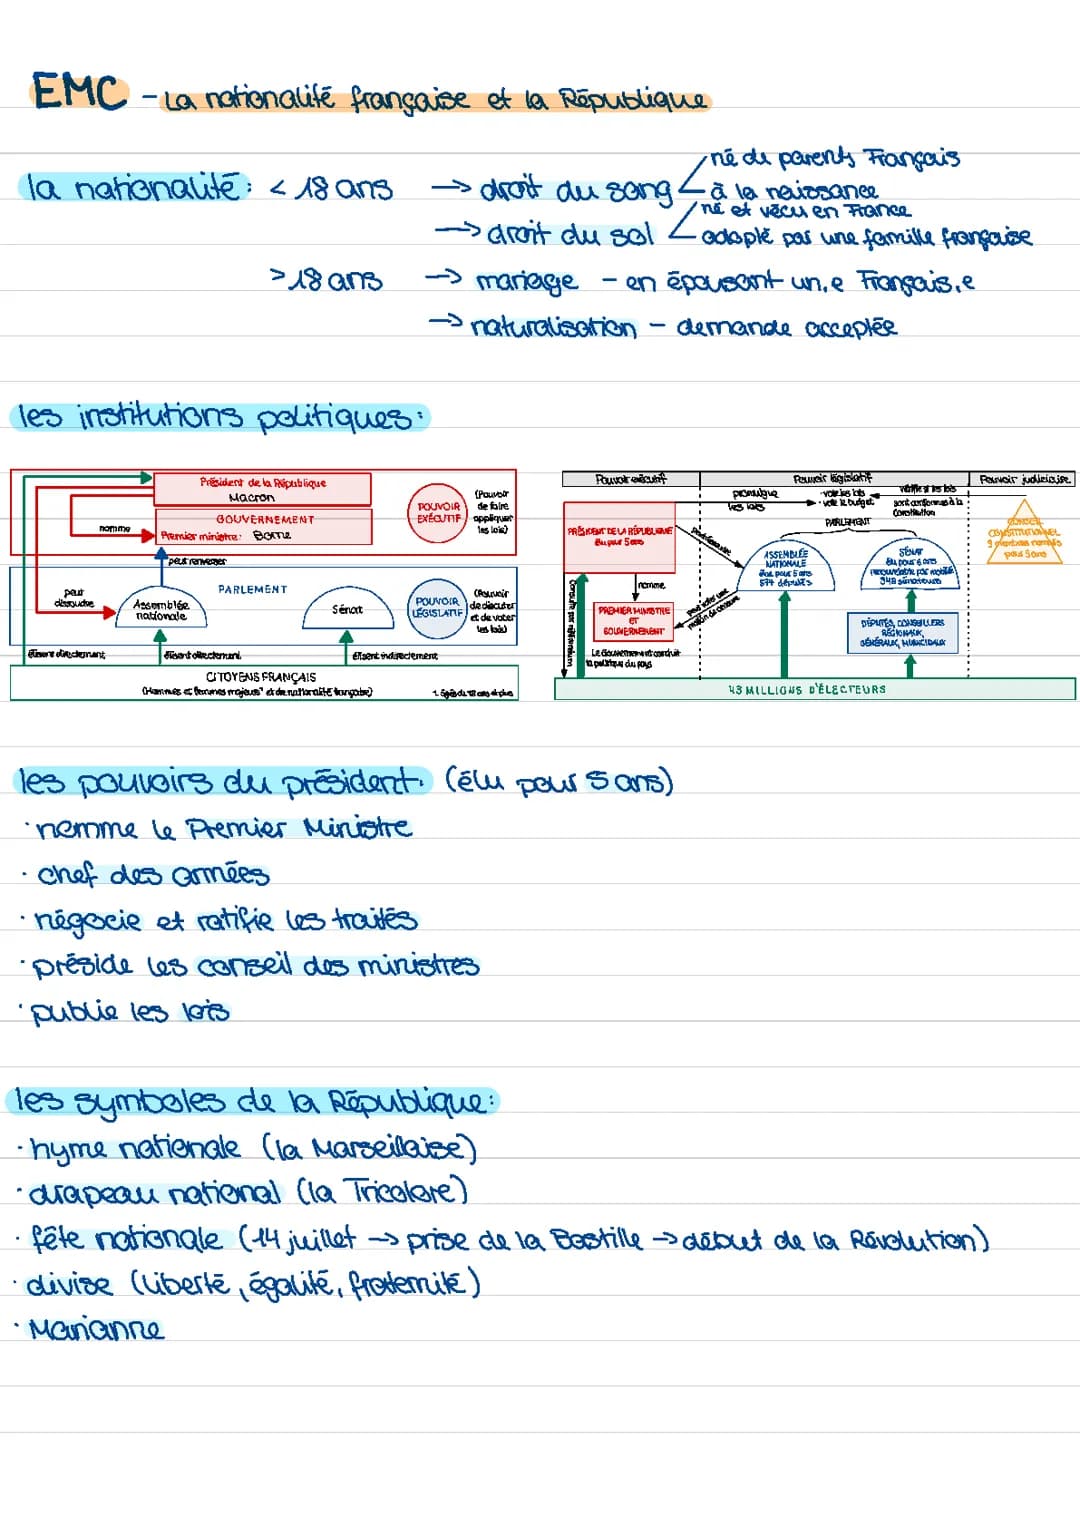 EMC - La nationalité française et la République
la nationalité: < 18 ans → droit du sang né de parents Français
à la naissance
→ droit du sol né et vécu en France
adopté par une famille française
> 18 ans → mariage - en épousant un.e Français.e
→ naturalisation - demande acceptée
les institutions politiques:
Président de la République
Macron
GOUVERNEMENT
Premier ministre: Borne
nomme
POUVOIR EXÉCUTIF
(Pouvoir
de faire
appliquer
les lois)
peut renverser
peut
dissoudre
PARLEMENT
Assemblée
nationale
Sénat
POUVOIR LÉGISLATIF
(Pouvoir
de discuter
et de voter
les lois)
élisent directement
élisent directement
élisent indirectement
CITOYENS FRANÇAIS
(Hommes et femmes majeurs¹ et de nationalité française)
1. Âgés de 18 ans et plus
Pouvoir exécutif
Pouvoir législatif
Pouvoir judiciaire
promulgue
les lois
- vote les lois
- vote le budget
vérifie si les lois
sont conformes à la
Constitution
PARLEMENT
PRÉSIDENT DE LA RÉPUBLIQUE
élu pour 5 ans
peut dissoudre
ASSEMBLÉE
NATIONALE
élus pour 5 ans
577 députés
SÉNAT
élu pour 6 ans
renouvelable par moitié
348 sénateurs
CONSEIL
CONSTITUTIONNEL
9 membres nommés
pour 9 ans
nomme
Consulte par référendum
PREMIER MINISTRE
ET
GOUVERNEMENT
peut voter une
motion de censure
DÉPUTÉS, CONSEILLERS
RÉGIONAUX,
GÉNÉRAUX, MUNICIPAUX
Le Gouvernement conduit
la politique du pays
43 MILLIONS D'ÉLECTEURS
les pouvoirs du président: (élu pour 5 ans)
· nomme le Premier Ministre
· chef des armées
· négocie et ratifie les traités
· préside les conseil des ministres
· publie les lois
les symboles de la République:
· hyme nationale (la Marseillaise)
· drapeau national (la Tricolore)
· fête nationale (14 juillet → prise de la Bastille → début de la Révolution)
· divise (liberté, égalité, fraternité)
· Marianne